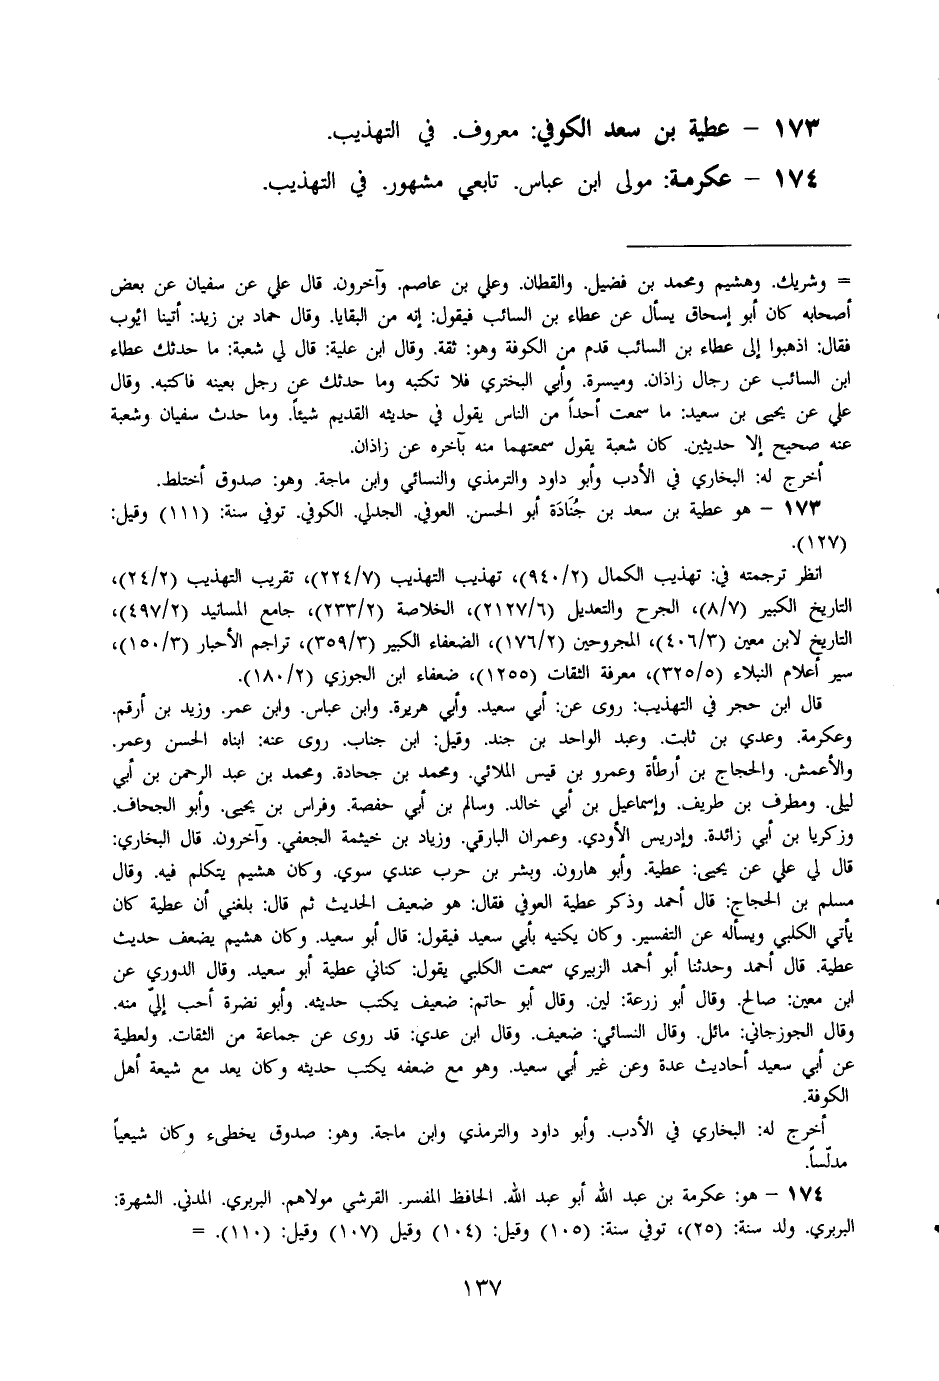 ١٧٣ – عطية بن سعد الكوفي: معروف. في التهذيب.
١٧٤ – عكرمة: مولى ابن عباس. تابعي مشهور. في التهذيب.
= وشريك. وهشيم ومحمد بن فضيل. والقطان. وعلي بن عاصم. وآخرون. قال علي عن سفيان عن بعض
أصحابه كان أبو إسحاق يسأل عن عطاء بن السائب فيقول: إنه من البقايا. وقال حماد بن زيد: أتينا ايوب
فقال: اذهبوا إلى عطاء بن السائب قدم من الكوفة وهو: ثقة. وقال ابن علية: قال لي شعبة: ما حدثك عطاء
ابن السائب عن رجال زاذان. وميسرة. وأبي البختري فلا تكتبه وما حدثك عن رجل بعينه فاكتبه. وقال
علي عن يحيى بن سعيد: ما سمعت أحداً من الناس يقول في حديثه القديم شيئاً. وما حدث سفيان وشعبة
عنه صحيح إلا حديثين. كان شعبة يقول سمعتهما منه بآخره عن زاذان.
أخرج له: البخاري في الأدب وأبو داود والترمذي والنسائي وابن ماجة. وهو: صدوق أختلط.
١٧٣ – هو عطية بن سعد بن جُنَادَة أبو الحسن. العوفي. الجدلي. الكوفي. توفي سنة: (١١١) وقيل:
(١٢٧).
انظر ترجمته في: تهذيب الكمال (٩٤٠/٢)، تهذيب التهذيب (٢٢٤/٧)، تقريب التهذيب (٢٤/٢)،
التاريخ الكبير (٨/٧)، الجرح والتعديل (٢١٢٧/٦)، الخلاصة (٢٣٣/٢)، جامع المسانيد (٤٩٧/٢)،
التاريخ لابن معين (٤٠٦/٣)، المجروحين (١٧٦/٢)، الضعفاء الكبير (٣٥٩/٣)، تراجم الأحبار (١٥٠/٣)،
سير أعلام النبلاء (٣٢٥/٥)، معرفة الثقات (١٢٥٥)، ضعفاء ابن الجوزي (١٨٠/٢).
قال ابن حجر في التهذيب: روى عن: أبي سعيد. وأبي هريرة. وابن عباس. وابن عمر. وزيد بن أرقم.
وعكرمة. وعدي بن ثابت. وعبد الواحد بن جند. وقيل: ابن جناب. روى عنه: ابناه الحسن وعمر.
والأعمش. والحجاج بن أرطأة وعمرو بن قيس الملائي. ومحمد بن جحادة. ومحمد بن عبد الرحمن بن أبي
ليلى. ومطرف بن طريف. وإسماعيل بن أبي خالد. وسالم بن أبي حفصة. وفراس بن يحيى. وأبو الجحاف.
وزكريا بن أبي زائدة. وإدريس الأودي. وعمران البارقي. وزياد بن خيثمة الجعفي. وآخرون. قال البخاري:
قال لي علي عن يحيى: عطية. وأبو هارون. وبشر بن حرب عندي سوي. وكان هشيم يتكلم فيه. وقال
مسلم بن الحجاج: قال أحمد وذكر عطية العوفي فقال: هو ضعيف الحديث ثم قال: بلغني أن عطية كان
يأتي الكلبي ويسأله عن التفسير. وكان يكنيه بأبي سعيد فيقول: قال أبو سعيد. وكان هشيم يضعف حديث
عطية. قال أحمد وحدثنا أبو أحمد الزبيري سمعت الكلبي يقول: كناني عطية أبو سعيد. وقال الدوري عن
ابن معين: صالح. وقال أبو زرعة: لين. وقال أبو حاتم: ضعيف يكتب حديثه. وأبو نضرة أحب إليّ منه.
وقال الجوزجاني: مائل. وقال النسائي: ضعيف. وقال ابن عدي: قد روى عن جماعة من الثقات. ولعطية
عن أبي سعيد أحاديث عدة وعن غير أبي سعيد. وهو مع ضعفه يكتب حديثه وكان يعد مع شيعة أهل
الكوفة.
أخرج له: البخاري في الأدب. وأبو داود والترمذي وابن ماجة. وهو: صدوق يخطىء وكان شيعياً
مدلّساً.
١٧٤ – هو: عكرمة بن عبد الله أبو عبد الله. الحافظ المفسر. القرشي مولاهم. البربري. المدني. الشهرة:
البربري. ولد سنة: (٢٥)، توفي سنة: (١٠٥) وقيل: (١٠٤) وقيل (١٠٧) وقيل: (١١٠). =
١٣٧